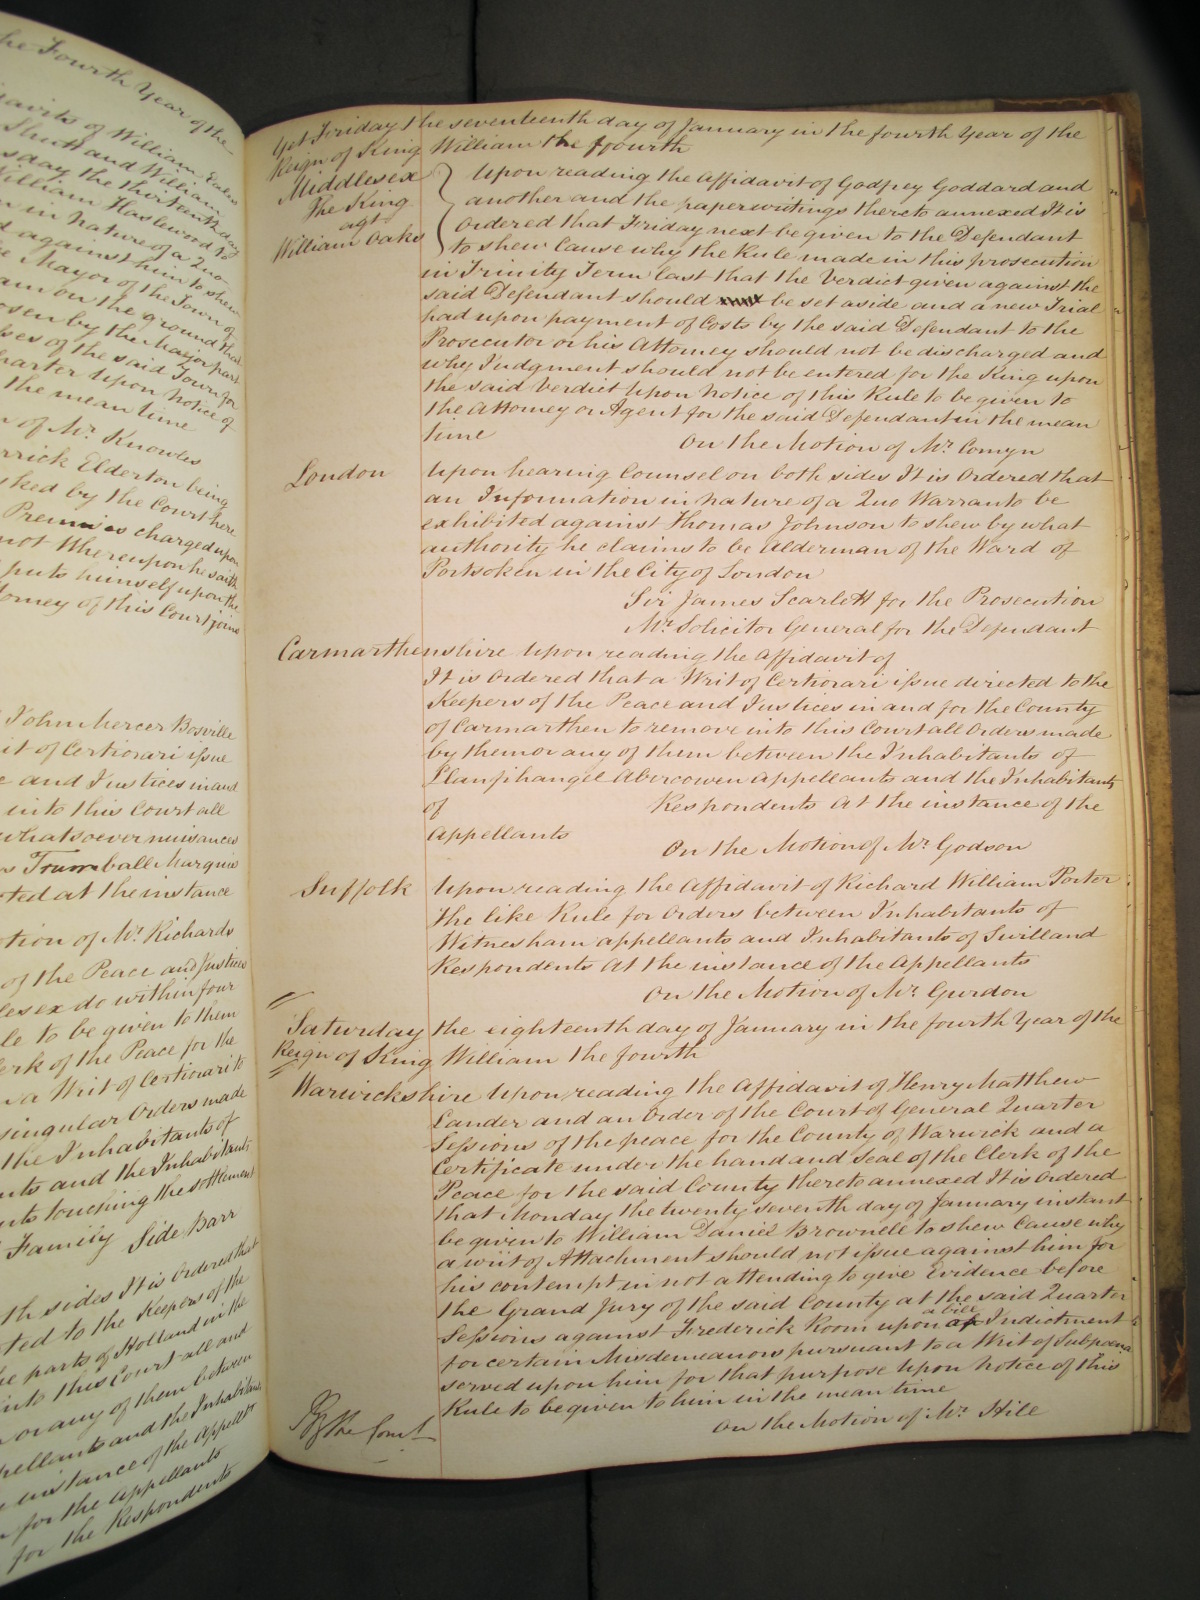 he Fourth Year of the
davits of William Eales
Shutt and William
sday the thirteenth day
William Haslewood to
n in nature of a Quo
d against him to shew
e Mayor of the Town of
am on the ground that
osen by the Mayor part
sses of the said Town for
harter upon Notice of
the mean time
n of Mr. Knowles
rrick Elderton being
sked by the Court here
Premises charged upon
not Whereupon he saith
puts himself upon the
torney of this Court joins
John Mercer Bosville
it of Certiorari issue
e and Justices in and
into this Court all
whatsoever nuisances
Trumball Marquis
ted at the instance
otion of Mr. Richards
of the Peace and Justices
lesex do within four
le to be given to them
erk of the Peace for the
a Writ of Certiorari to
singular Orders made
the Inhabitants of
nts and the Inhabitants
nts touching the settlement
Family Side Barr
th sides It is Ordered that
ted to the Keepers of the
he parts of Holland in the
into this Court all and
or any of them between
pellants and the Inhabitants
instance of the Appellts
for the Appellants
for the Respondents
Yet Friday the seventeenth day of January in the fourth Year of the
Reign of King William the fourth
Middlesex
The King
agt
William Oakes
Upon reading the Affidavit of Godfrey Goddard and
another and the paperwritings thereto annexed It is
Ordered that Friday next be given to the Defendant
to shew Cause why the Rule made in this prosecution
in Trinity Term last that the Verdict given against the
said Defendant should be set aside and a new Trial
had upon payment of Costs by the said Defendant to the
Prosecutor or his Attorney should not be discharged and
why Judgment should not be entered for the King upon
the said Verdict Upon Notice of this Rule to be given to
the Attorney or Agent for the said Defendant in the mean
time
On the Motion of Mr. Comyn
London Upon hearing Counsel on both sides It is Ordered that
an Information in nature of a Quo Warranto be
exhibited against Thomas Johnson to shew by what
authority he claims to be Alderman of the Ward of
Portsoken in the City of London
Sir James Scarlett for the Prosecution
Mr. Solicitor General for the Defendant
Carmarthenshire Upon reading the Affidavit of
It is Ordered that a Writ of Certiorari issue directed to the
Keepers of the Peace and Justices in and for the County
of Carmarthen to remove into this Court all Orders made
by them or any of them between the Inhabitants of
Llanfihangel Abercowen Appellants and the Inhabitants
of Respondents At the instance of the
Appellants
On the Motion of Mr. Godson
Suffolk Upon reading the Affidavit of Richard William Porter
the like Rule for Orders between Inhabitants of
Witnesham appellants and Inhabitants of Swilland
Respondents At the instance of the Appellants
On the Motion of Mr. Gurdon
Saturday the eighteenth day of January in the fourth Year of the
Reign of King William the fourth
Warwickshire Upon reading the Affidavit of Henry Matthew
Lander and an Order of the Court of General Quarter
Sessions of the peace for the County of Warwick and a
Certificate under the hand and Seal of the Clerk of the
Peace for the said County thereto annexed It is Ordered
that Monday the twenty seventh day of January instant
be given to William Daniel Brownell to shew Cause why
a writ of Attachment should not issue against him for
his contempt in not attending to give Evidence before
the Grand Jury of the said County at the said Quarter
Sessions against Frederick Room upon a bill of Indictment
for certain Misdemeanors pursuant to a Writ of Subpoena
served upon him for that purpose Upon Notice of this
Rule to be given to him in the mean time
On the Motion of Mr. Hill
By the Court